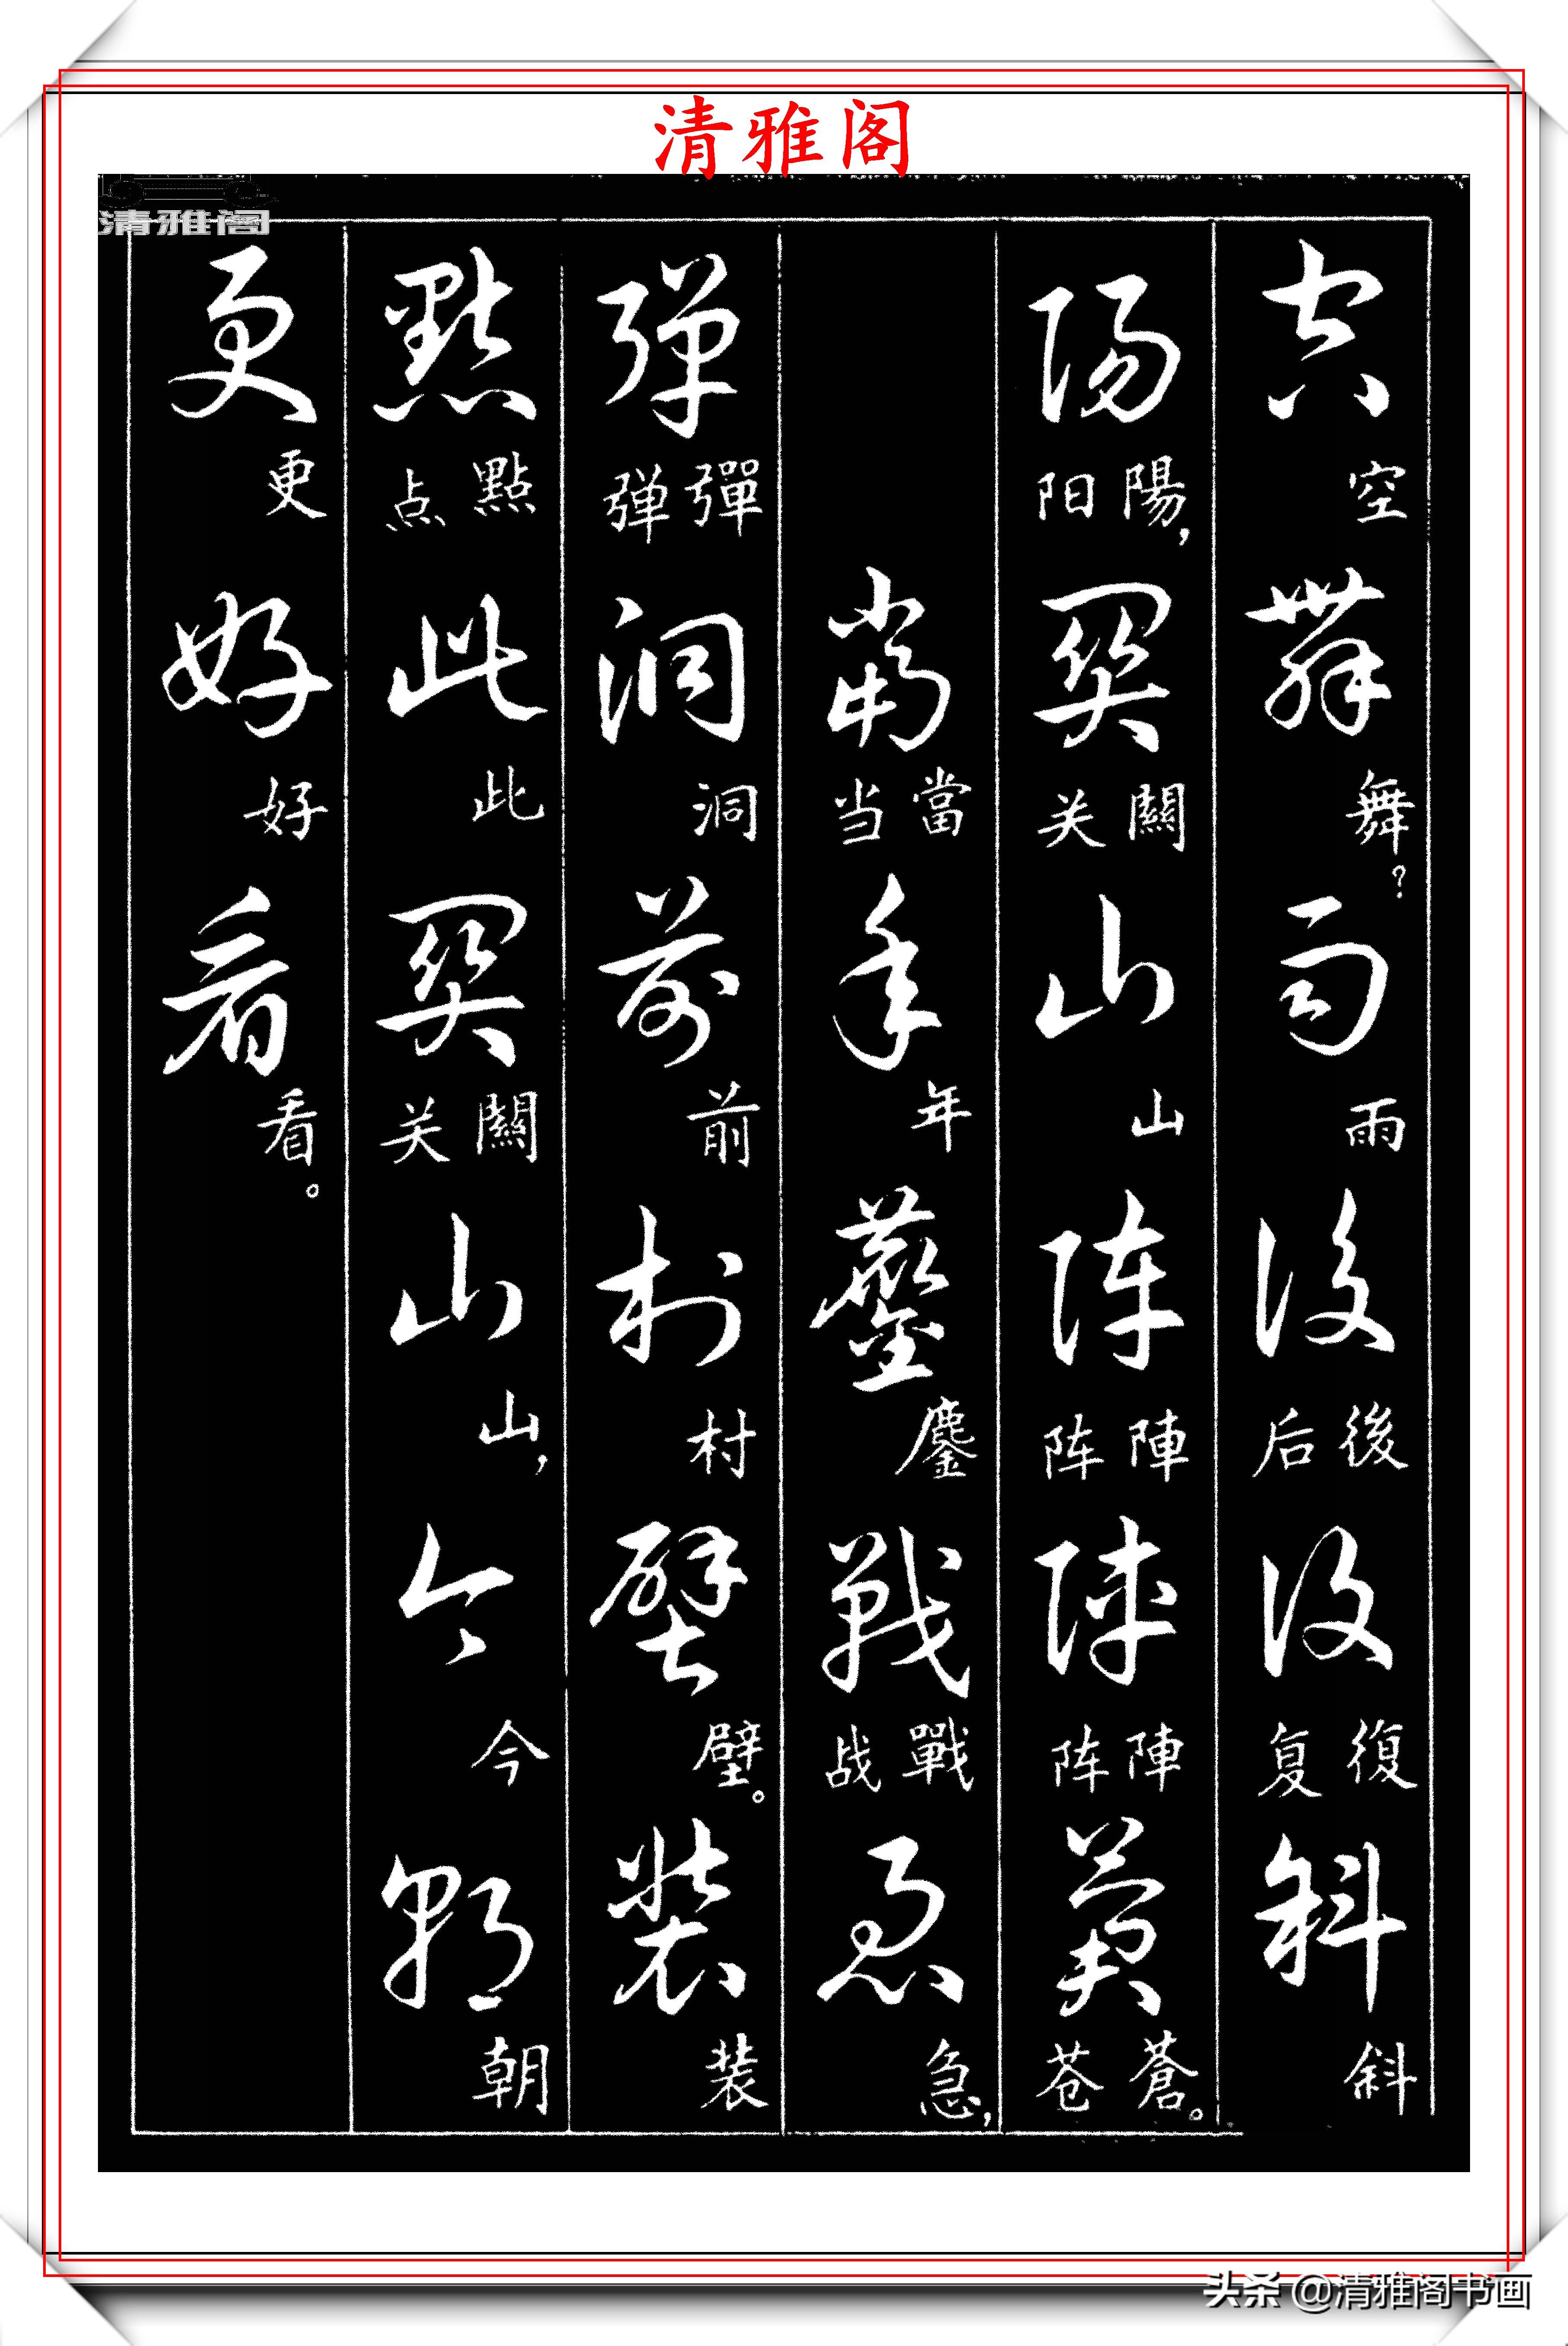 清雅阁
清雅阁
空 空 舞 舞？ 雨 雨 後 後 后 復 復 复 斜 斜
陽 陽， 阳 關 關 关 山 山 陣 陣 阵 陣 陣 阵 蒼 蒼。 苍
當 當 当 年 年 鏖 鏖 戰 戰 战 急 急，
彈 彈 弹 洞 洞 前 前 村 村 壁 壁。 装 装
點 點 点 此 此 關 關 关 山 山， 今 今 朝 朝
更 更 好 好 看 看。
头条 @清雅阁书画